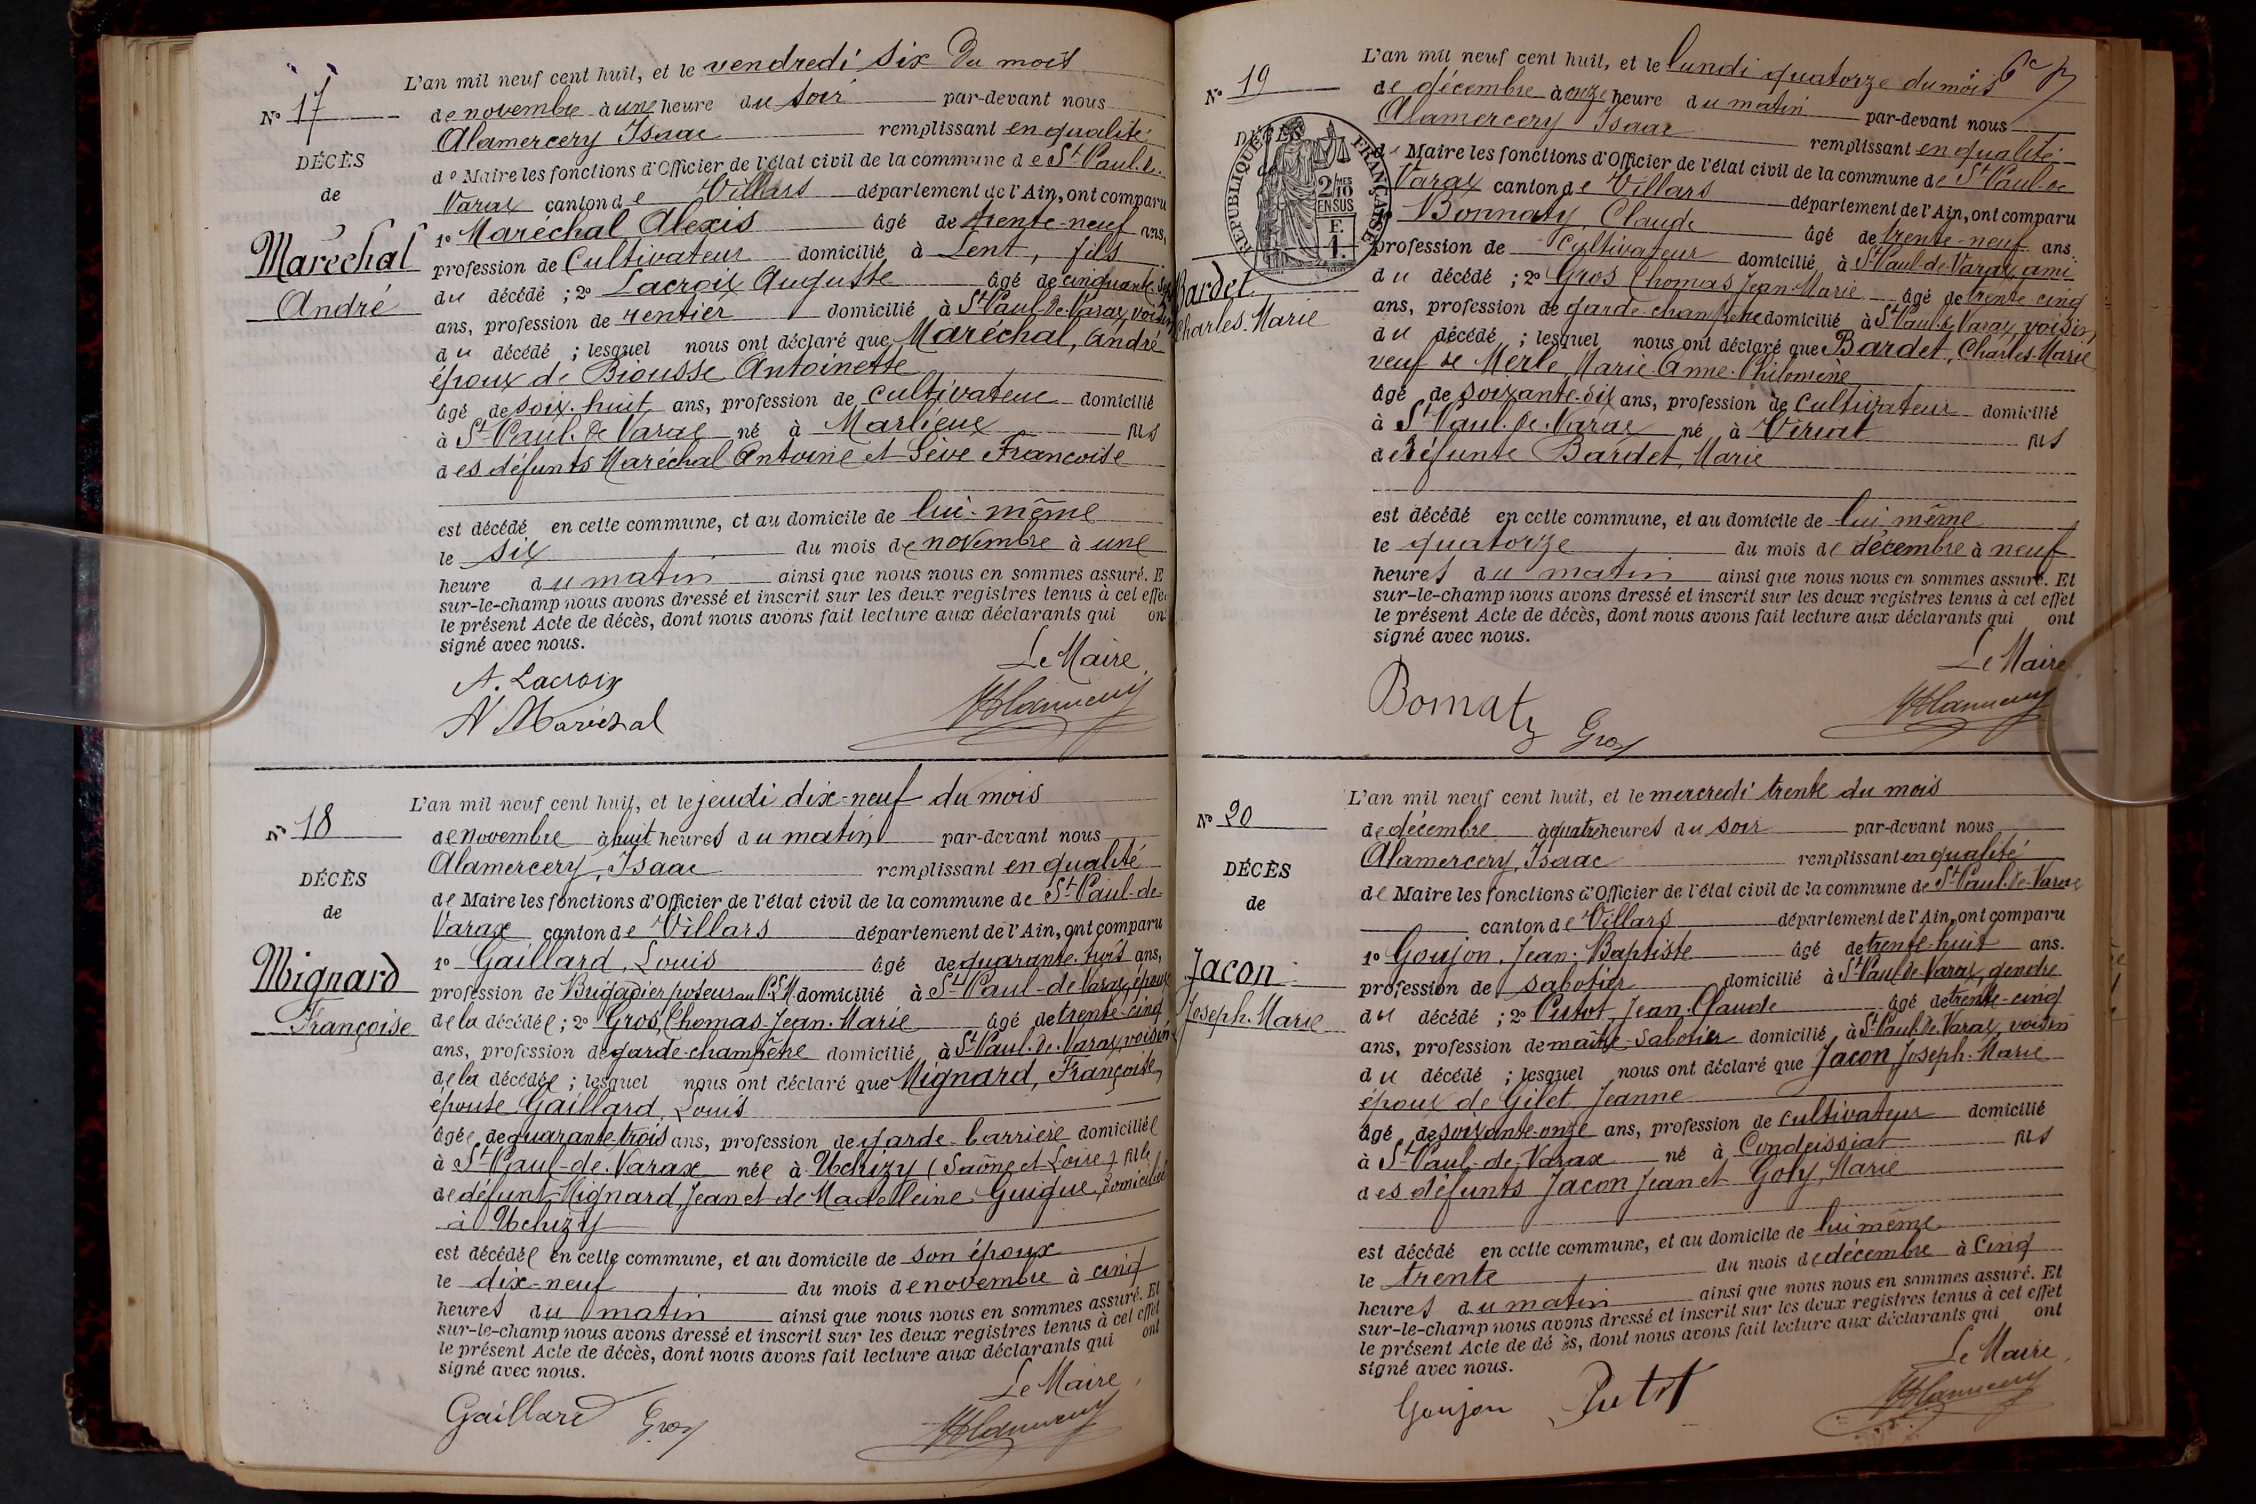 N° 17
DÉCÈS
de
Maréchal
André
L'an mil neuf cent huit, et le vendredi six du mois
de novembre à une heure du soir par-devant nous
Alamercery Isaac remplissant en qualité
de Maire les fonctions d'Officier de l'état civil de la commune de St Paul-de-
Varax canton de Villars département de l'Ain, ont comparu
1° Maréchal Alexis âgé de trente-neuf ans,
profession de Cultivateur domicilié à Lent, fils
du décédé ; 2° Lacroix Auguste âgé de cinquante
ans, profession de rentier domicilié à St Paul-de-Varax, voisin
du décédé ; lesquel nous ont déclaré que Maréchal, André
époux de Biousse Antoinette
âgé de soix. huit ans, profession de cultivateur domicilié
à St Paul. de Varax né à Marlieux fils
des défunts Maréchal Antoine et Sève Françoise
est décédé en cette commune, et au domicile de lui-même
le six du mois de novembre à une
heure du matin ainsi que nous nous en sommes assuré. E
sur-le-champ nous avons dressé et inscrit sur les deux registres tenus à cet effe
le présent Acte de décès, dont nous avons fait lecture aux déclarants qui on
signé avec nous.
Le Maire
A. Lacroix
A Maréchal
N° 18
DÉCÈS
de
Mignard
Françoise
L'an mil neuf cent huit, et le jeudi dix-neuf du mois
de novembre à huit heures du matin par-devant nous
Alamercery, Isaac remplissant en qualité
de Maire les fonctions d'Officier de l'état civil de la commune de St Paul-de-
Varax canton de Villars département de l'Ain, ont comparu
1° Gaillard, Louis âgé de quarante-trois ans,
profession de Brigadier poseur au P.L.M domicilié à St Paul-de-Varax, époux
de la décédée ; 2° Gros, Thomas-Jean-Marie âgé de trente-cinq
ans, profession de garde-champêtre domicilié à St Paul-de-Varax, voisin
de la décédée ; lesquel nous ont déclaré que Mignard, Françoise,
épouse Gaillard, Louis
âgée de quarante-trois ans, profession de garde-barrière domiciliée
à St Paul-de-Varax née à Uchizy (Saône et Loire) fille
de défunt Mignard, Jean et de Madelleine Guigue, domiciliée
à Uchizy
est décédée en cette commune, et au domicile de son époux
le dix-neuf du mois de novembre à cinq
heures du matin ainsi que nous nous en sommes assuré. Et
sur-le-champ nous avons dressé et inscrit sur les deux registres tenus à cet effet
le présent Acte de décès, dont nous avons fait lecture aux déclarants qui ont
signé avec nous.
Le Maire,
Gaillard Gros
N° 19
DÉCÈS
RÉPUBLIQUE FRANÇAISE
2/10 MES
EN SUS
F.
1.
Bardet
Charles-Marie
L'an mil neuf cent huit, et le lundi quatorze du mois
de décembre à onze heure du matin par-devant nous
Alamercery Isaac remplissant en qualité
de Maire les fonctions d'Officier de l'état civil de la commune de St Paul-de
Varax canton de Villars département de l'Ain, ont comparu
1° Bonnaty, Claude âgé de trente-neuf ans.
profession de Cultivateur domicilié à St Paul-de-Varax, ami
du décédé ; 2° Gros Thomas Jean-Marie âgé de trente cinq
ans, profession de garde-champêtre domicilié à St Paul-de Varax, voisin
du décédé ; lesquel nous ont déclaré que Bardet, Charles-Marie
veuf de Merle, Marie-Anne-Philomène
âgé de soixante-dix ans, profession de Cultivateur domicilié
à St Paul-de-Varax né à Viriat fils
de défunte Bardet, Marie
est décédé en cette commune, et au domicile de lui même
le quatorze du mois de décembre à neuf
heures du matin ainsi que nous nous en sommes assuré. Et
sur-le-champ nous avons dressé et inscrit sur les deux registres tenus à cet effet
le présent Acte de décès, dont nous avons fait lecture aux déclarants qui ont
signé avec nous.
Le Maire
Bonnaty Gros
N° 20
DÉCÈS
de
Jacon
Joseph. Marie
L'an mil neuf cent huit, et le mercredi trente du mois
de décembre à quatre heures du soir par-devant nous
Alamercery, Isaac remplissant en qualité
de Maire les fonctions d'Officier de l'état civil de la commune de St Paul-de-Varax
canton de Villars département de l'Ain, ont comparu
1° Goujon, Jean-Baptiste âgé de trente-huit ans.
profession de sabotier domicilié à St Paul-de-Varax, gendre
du décédé ; 2° Putot, Jean, Claude âgé de trente-cinq
ans, profession de maître-sabotier domicilié à St Paul-de-Varax, voisin
du décédé ; lesquel nous ont déclaré que Jacon Joseph-Marie
époux de Gilet Jeanne
âgé de soixante-onze ans, profession de cultivateur domicilié
à St Paul-de-Varax né à Condeissiat fils
des défunts Jacon Jean et Goty, Marie
est décédé en cette commune, et au domicile de lui même
le trente du mois de décembre à cinq
heures du matin ainsi que nous nous en sommes assuré. Et
sur-le-champ nous avons dressé et inscrit sur les deux registres tenus à cet effet
le présent Acte de décès, dont nous avons fait lecture aux déclarants qui ont
signé avec nous.
Le Maire,
Goujon Putot